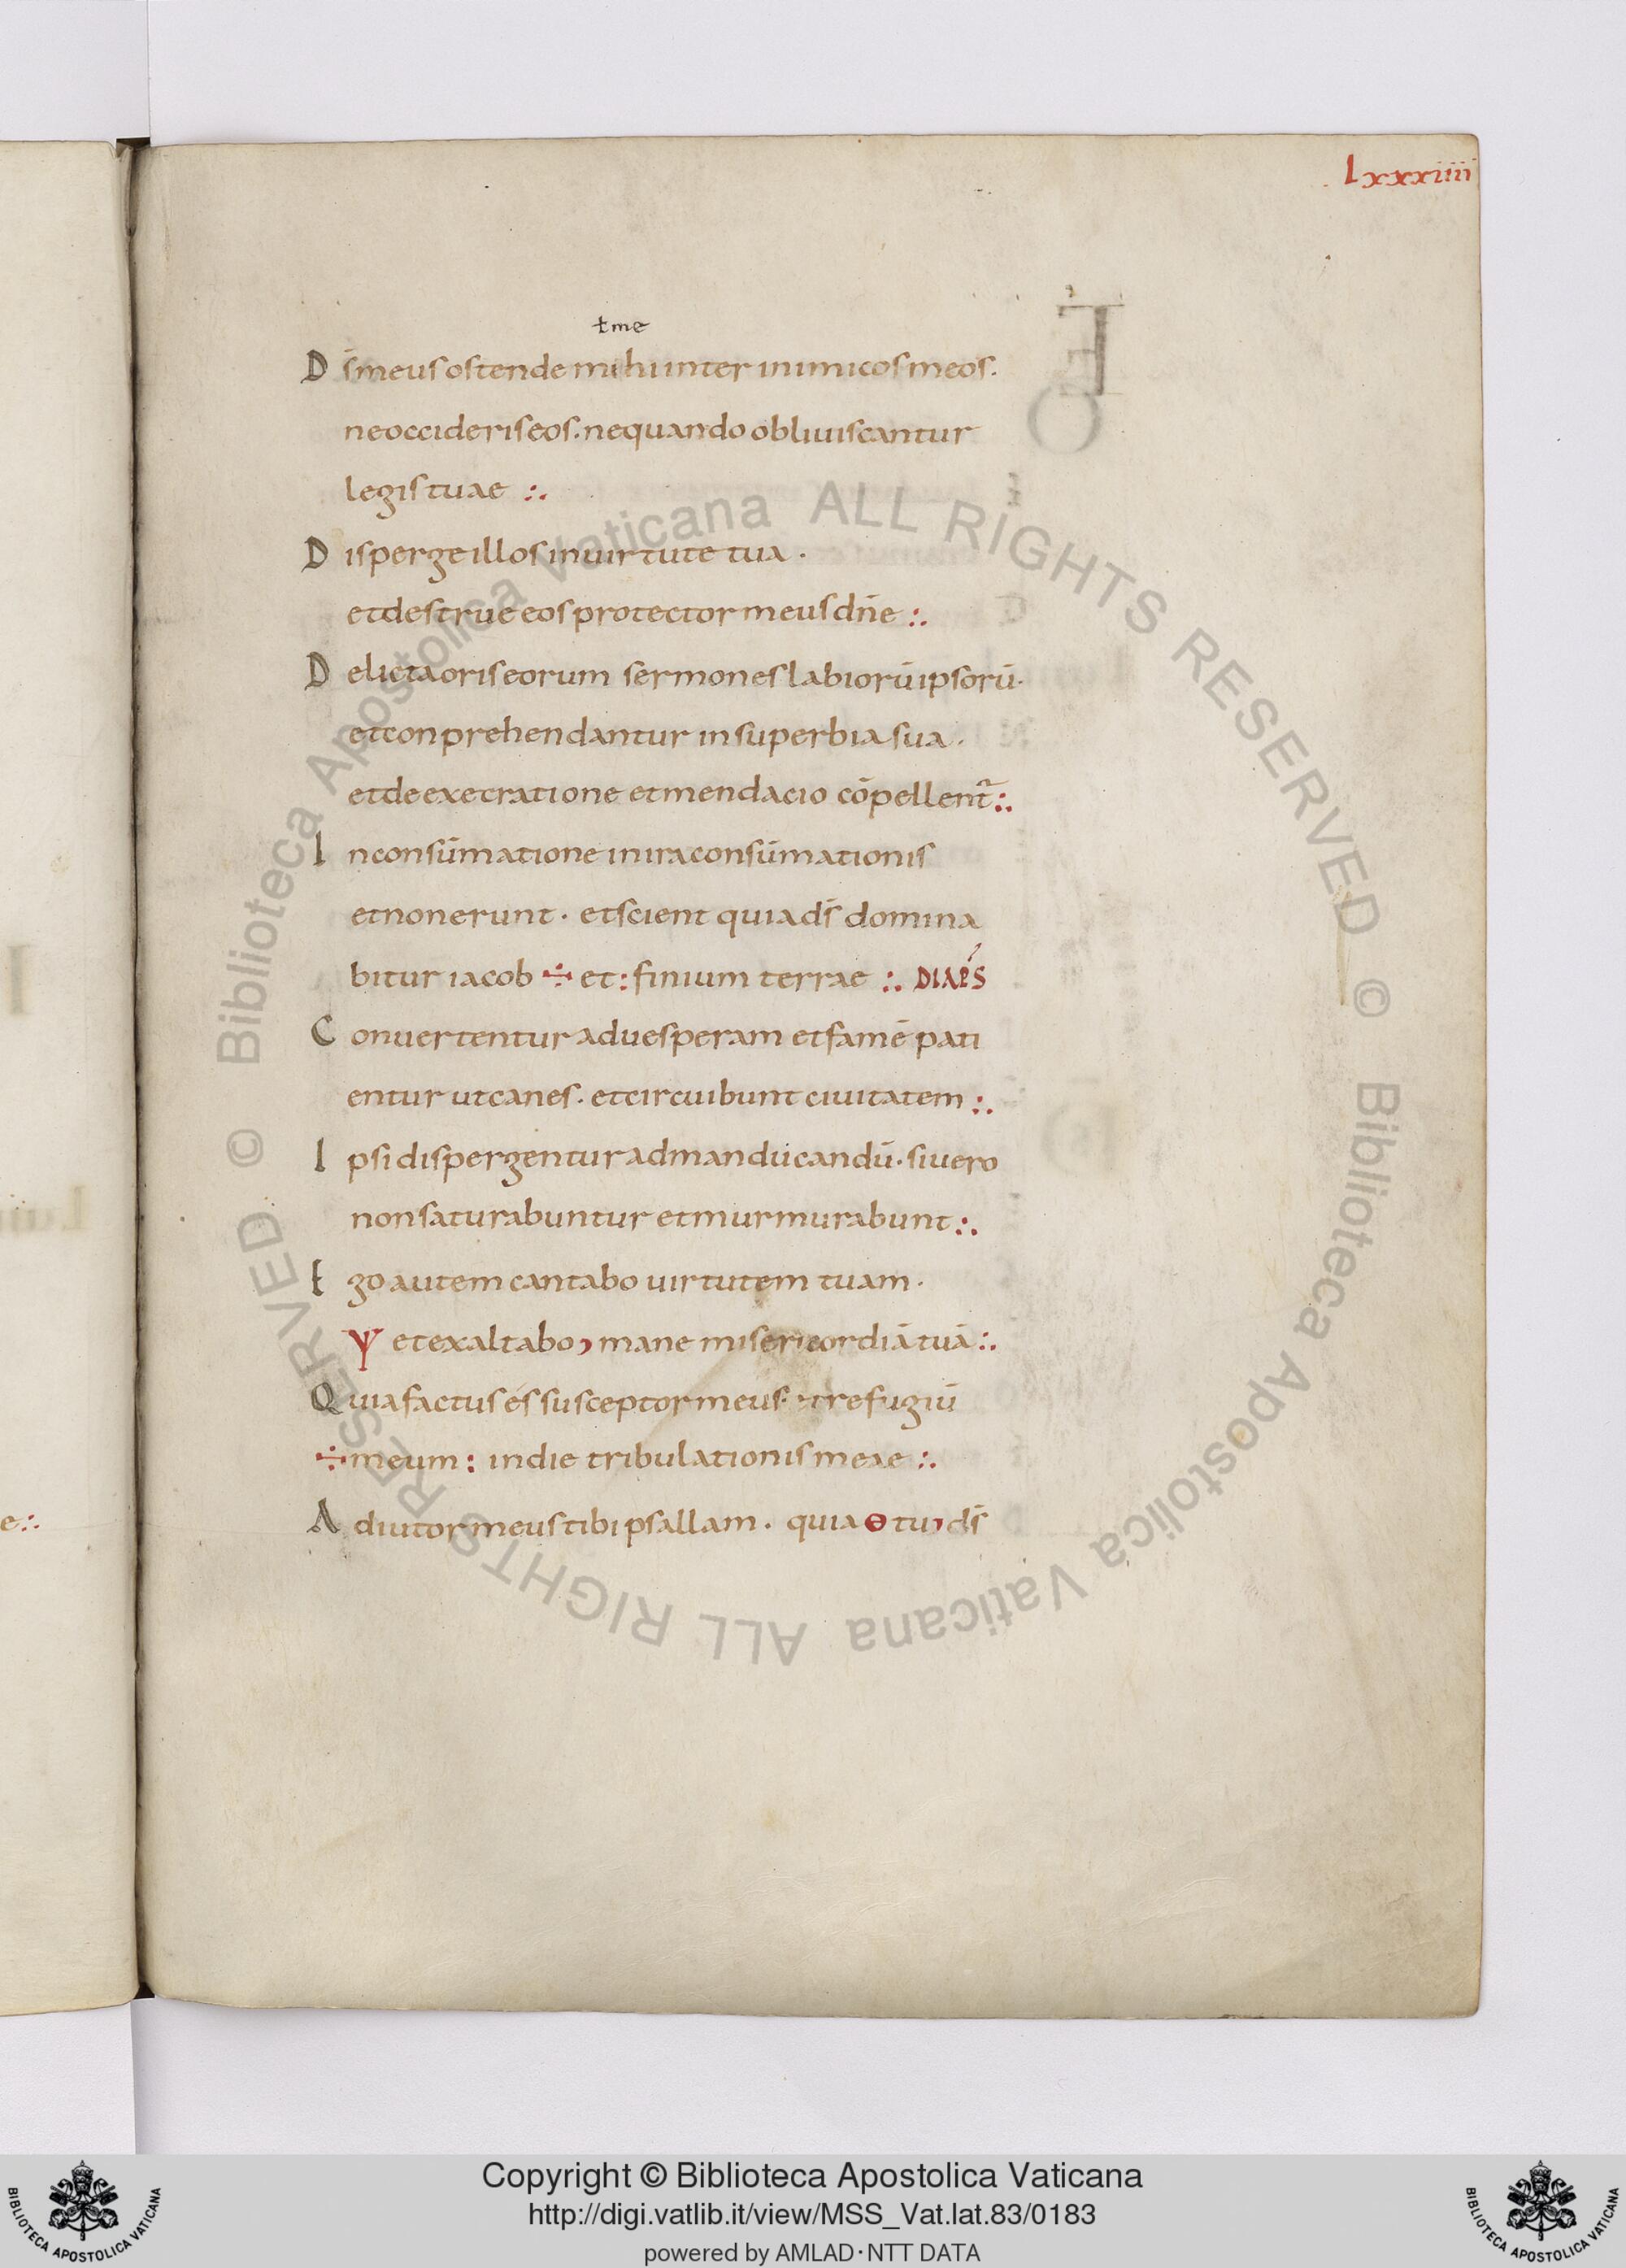 Lxxxiiii
ł me
D s̄ meus ostende mihi inter inimicos meos.
ne occideris eos. nequando obliuiscantur
legis tuae :.
D isperge illos in uirtute tua .
et destrue eos protector meus dn̄e :.
D elicta oris eorum sermones labiorū ipsorū.
et conprehendantur in superbia sua .
et de execratione et mendacio cōpellent᷑ :.
I n consūmatione in ira consūmationis
et non erunt . et scient quia ds̄ domina
bitur iacob ÷ et : finium terrae :. DIAPS
C onuertentur ad uesperam et famē pati
entur ut canes . et circuibunt ciuitatem :.
I psi dispergentur ad manducandū . si uero
non saturabuntur et murmurabunt :.
E go autem cantabo uirtutem tuam .
Ψ et exaltabo, mane misericordiā tuā :.
Q uia factus es susceptor meus . et refugiū
÷ meum : in die tribulationis meae :.
A diutor meus tibi psallam . quia ɵ tu, ds̄
e :.
Biblioteca Apostolica Vaticana ALL RIGHTS RESERVED © Biblioteca Apostolica Vaticana ALL RIGHTS RESERVED ©
Copyright © Biblioteca Apostolica Vaticana
http://digi.vatlib.it/view/MSS_Vat.lat.83/0183
powered by AMLAD·NTT DATA
BIBLIOTECA APOSTOLICA VATICANA
BIBLIOTECA APOSTOLICA VATICANA